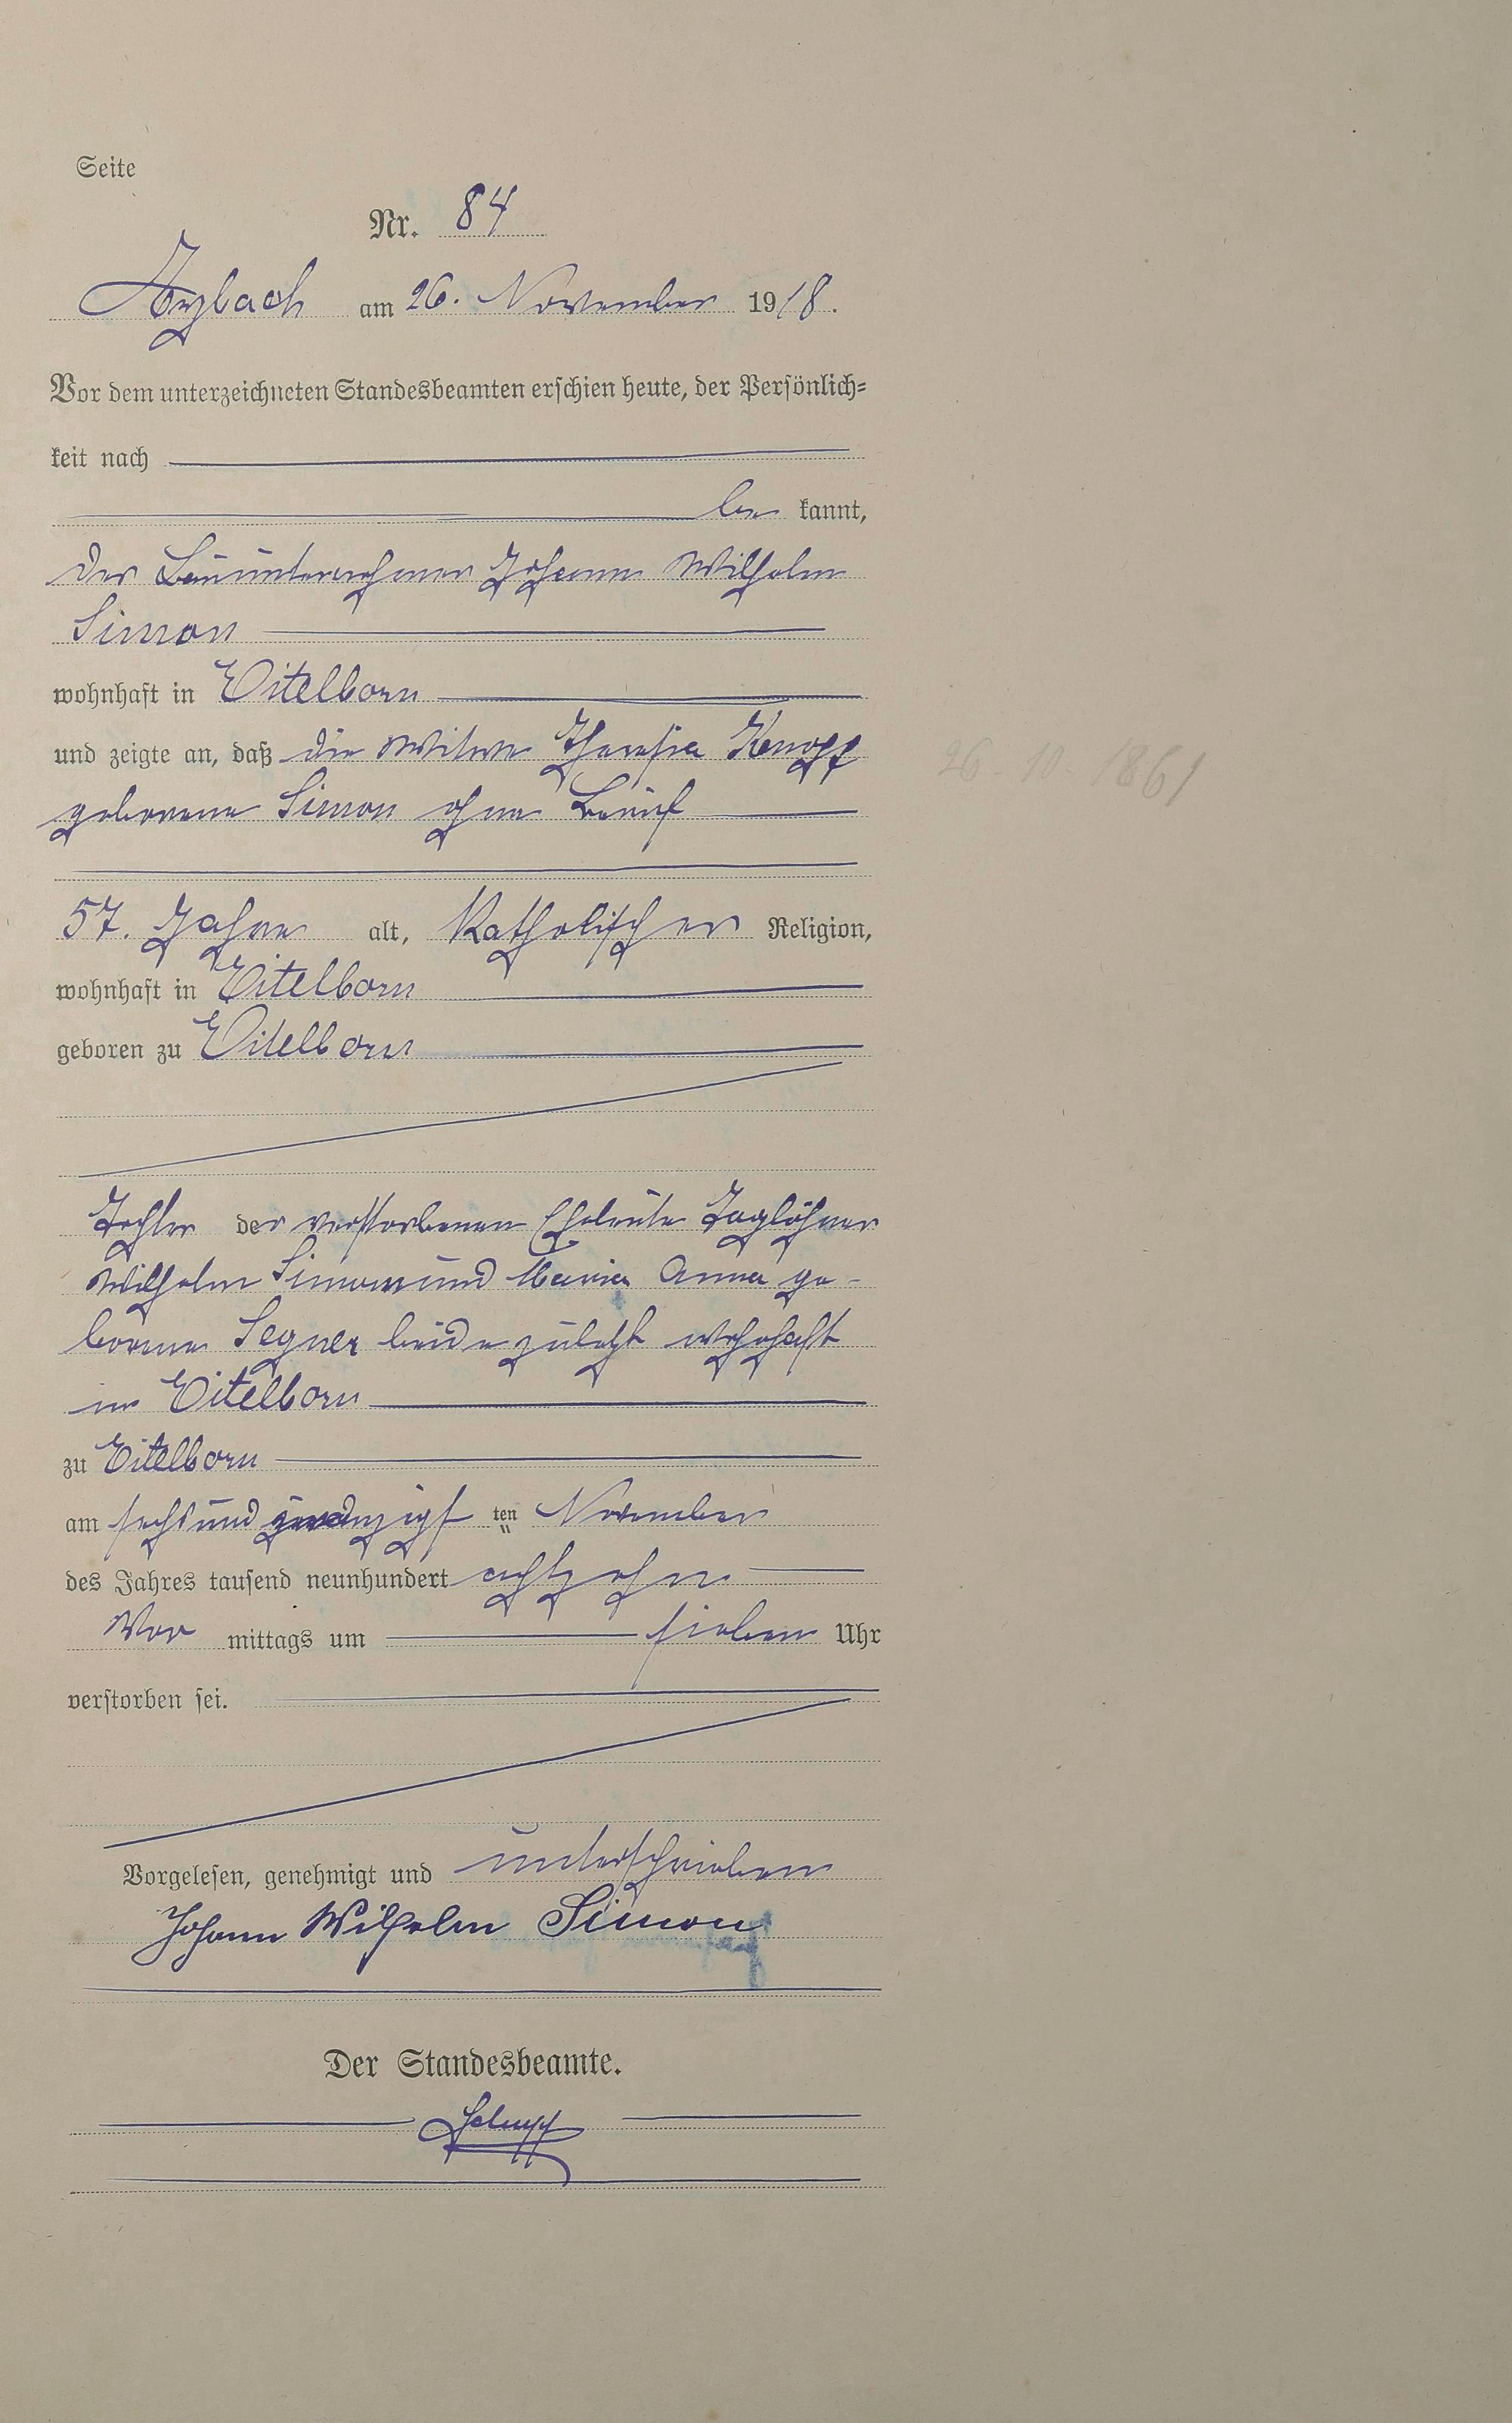 Seite
Nr. 84
Arzbach am 26. November 1918.
Vor dem unterzeichneten Standesbeamten erschien heute, der Persönlich=
keit nach
be kannt,
der Bauunternehmer Johann Wilhelm
Simon
wohnhaft in Eitelborn
und zeigte an, daß die Witwe Theresia Knopp
26. 10. 1861
geborene Simon ohne Beruf
57. Jahre alt, Katholischer Religion,
wohnhaft in Eitelborn
geboren zu Eitelborn
Tochter der verstorbenen Eheleute Taglöhner
Wilhelm Simon und Maria Anna ge-
borene Segner beide zuletzt wohnhaft
in Eitelborn
zu Eitelborn
am sechsundzwanzigsten November
des Jahres tausend neunhundert achtzehn
Vor mittags um sieben Uhr
verstorben sei.
Vorgelesen, genehmigt und unterschrieben
Johann Wilhelm Simon
Der Standesbeamte.